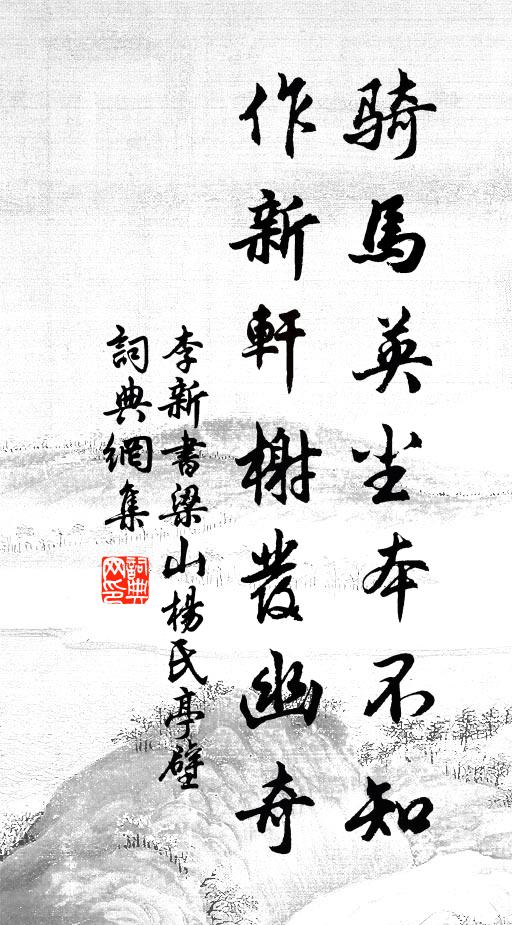 騎馬英尘本不知
作新軒榭發幽奇
李新書梁山楊氏亭壁
詞典網集
詞典网印